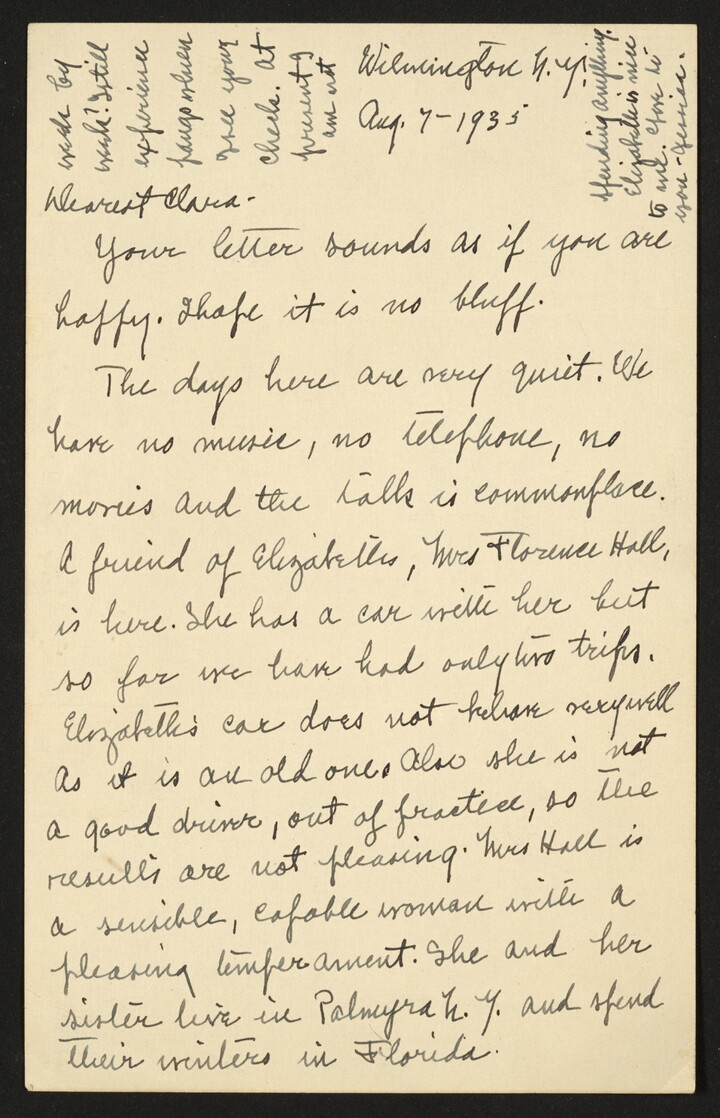 Wilmington N.Y.
Aug. 7-1935
Dearest Clara-
Your letter sounds as if you are
happy. I hope it is no bluff.
The days here are very quiet. We
have no music, no telephone, no
movies and the talk is commonplace.
A friend of Elizabeth's, Mrs Florence Hall,
is here. She has a car with her but
so far we have had only two trips.
Elizabeth's car does not behave very well
as it is an old one. Also she is not
a good driver, out of practice, so the
results are not pleasing. Mrs Hall is
a sensible, capable woman with a
pleasing temperament. She and her
sister live in Palmyra N.Y. and spend
their winters in Florida.
week by
week? I still
experience
pangs when
I see your
check. At
present I
am not
spending anything.
Elizabeth is nice
to me. Love to
you - Jessica.